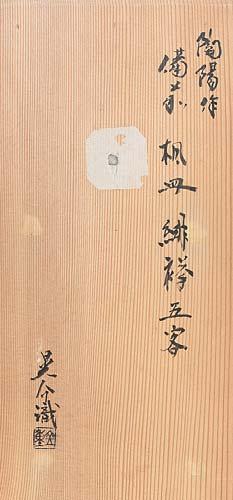 陶陽作
備前 楓皿 緋襷 五客
晃介識